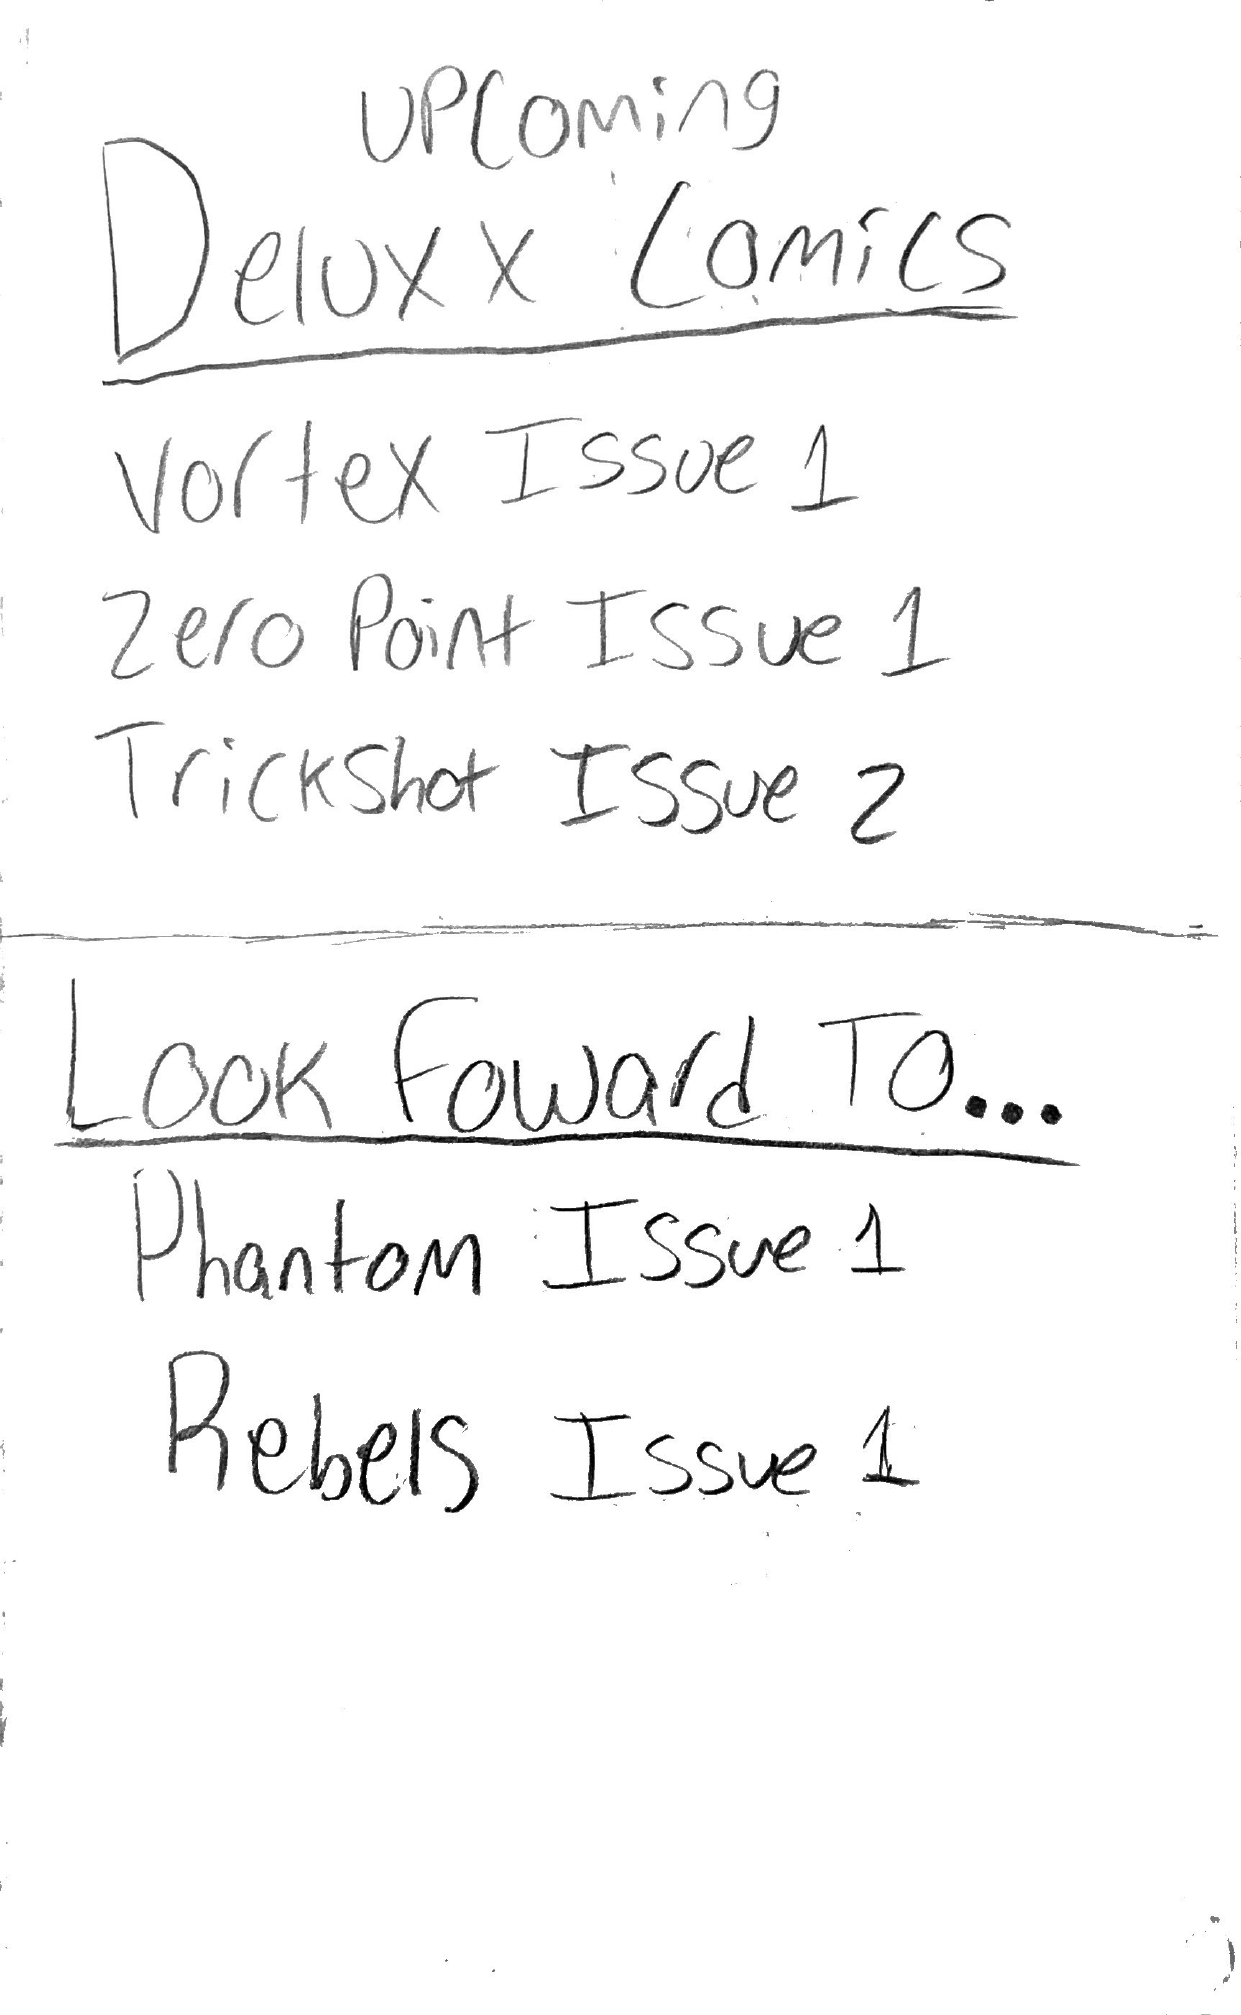 Upcoming
Deluxx Comics
Vortex Issue 1
Zero Point Issue 1
Trickshot Issue 2
Look Foward To...
Phantom Issue 1
Rebels Issue 1